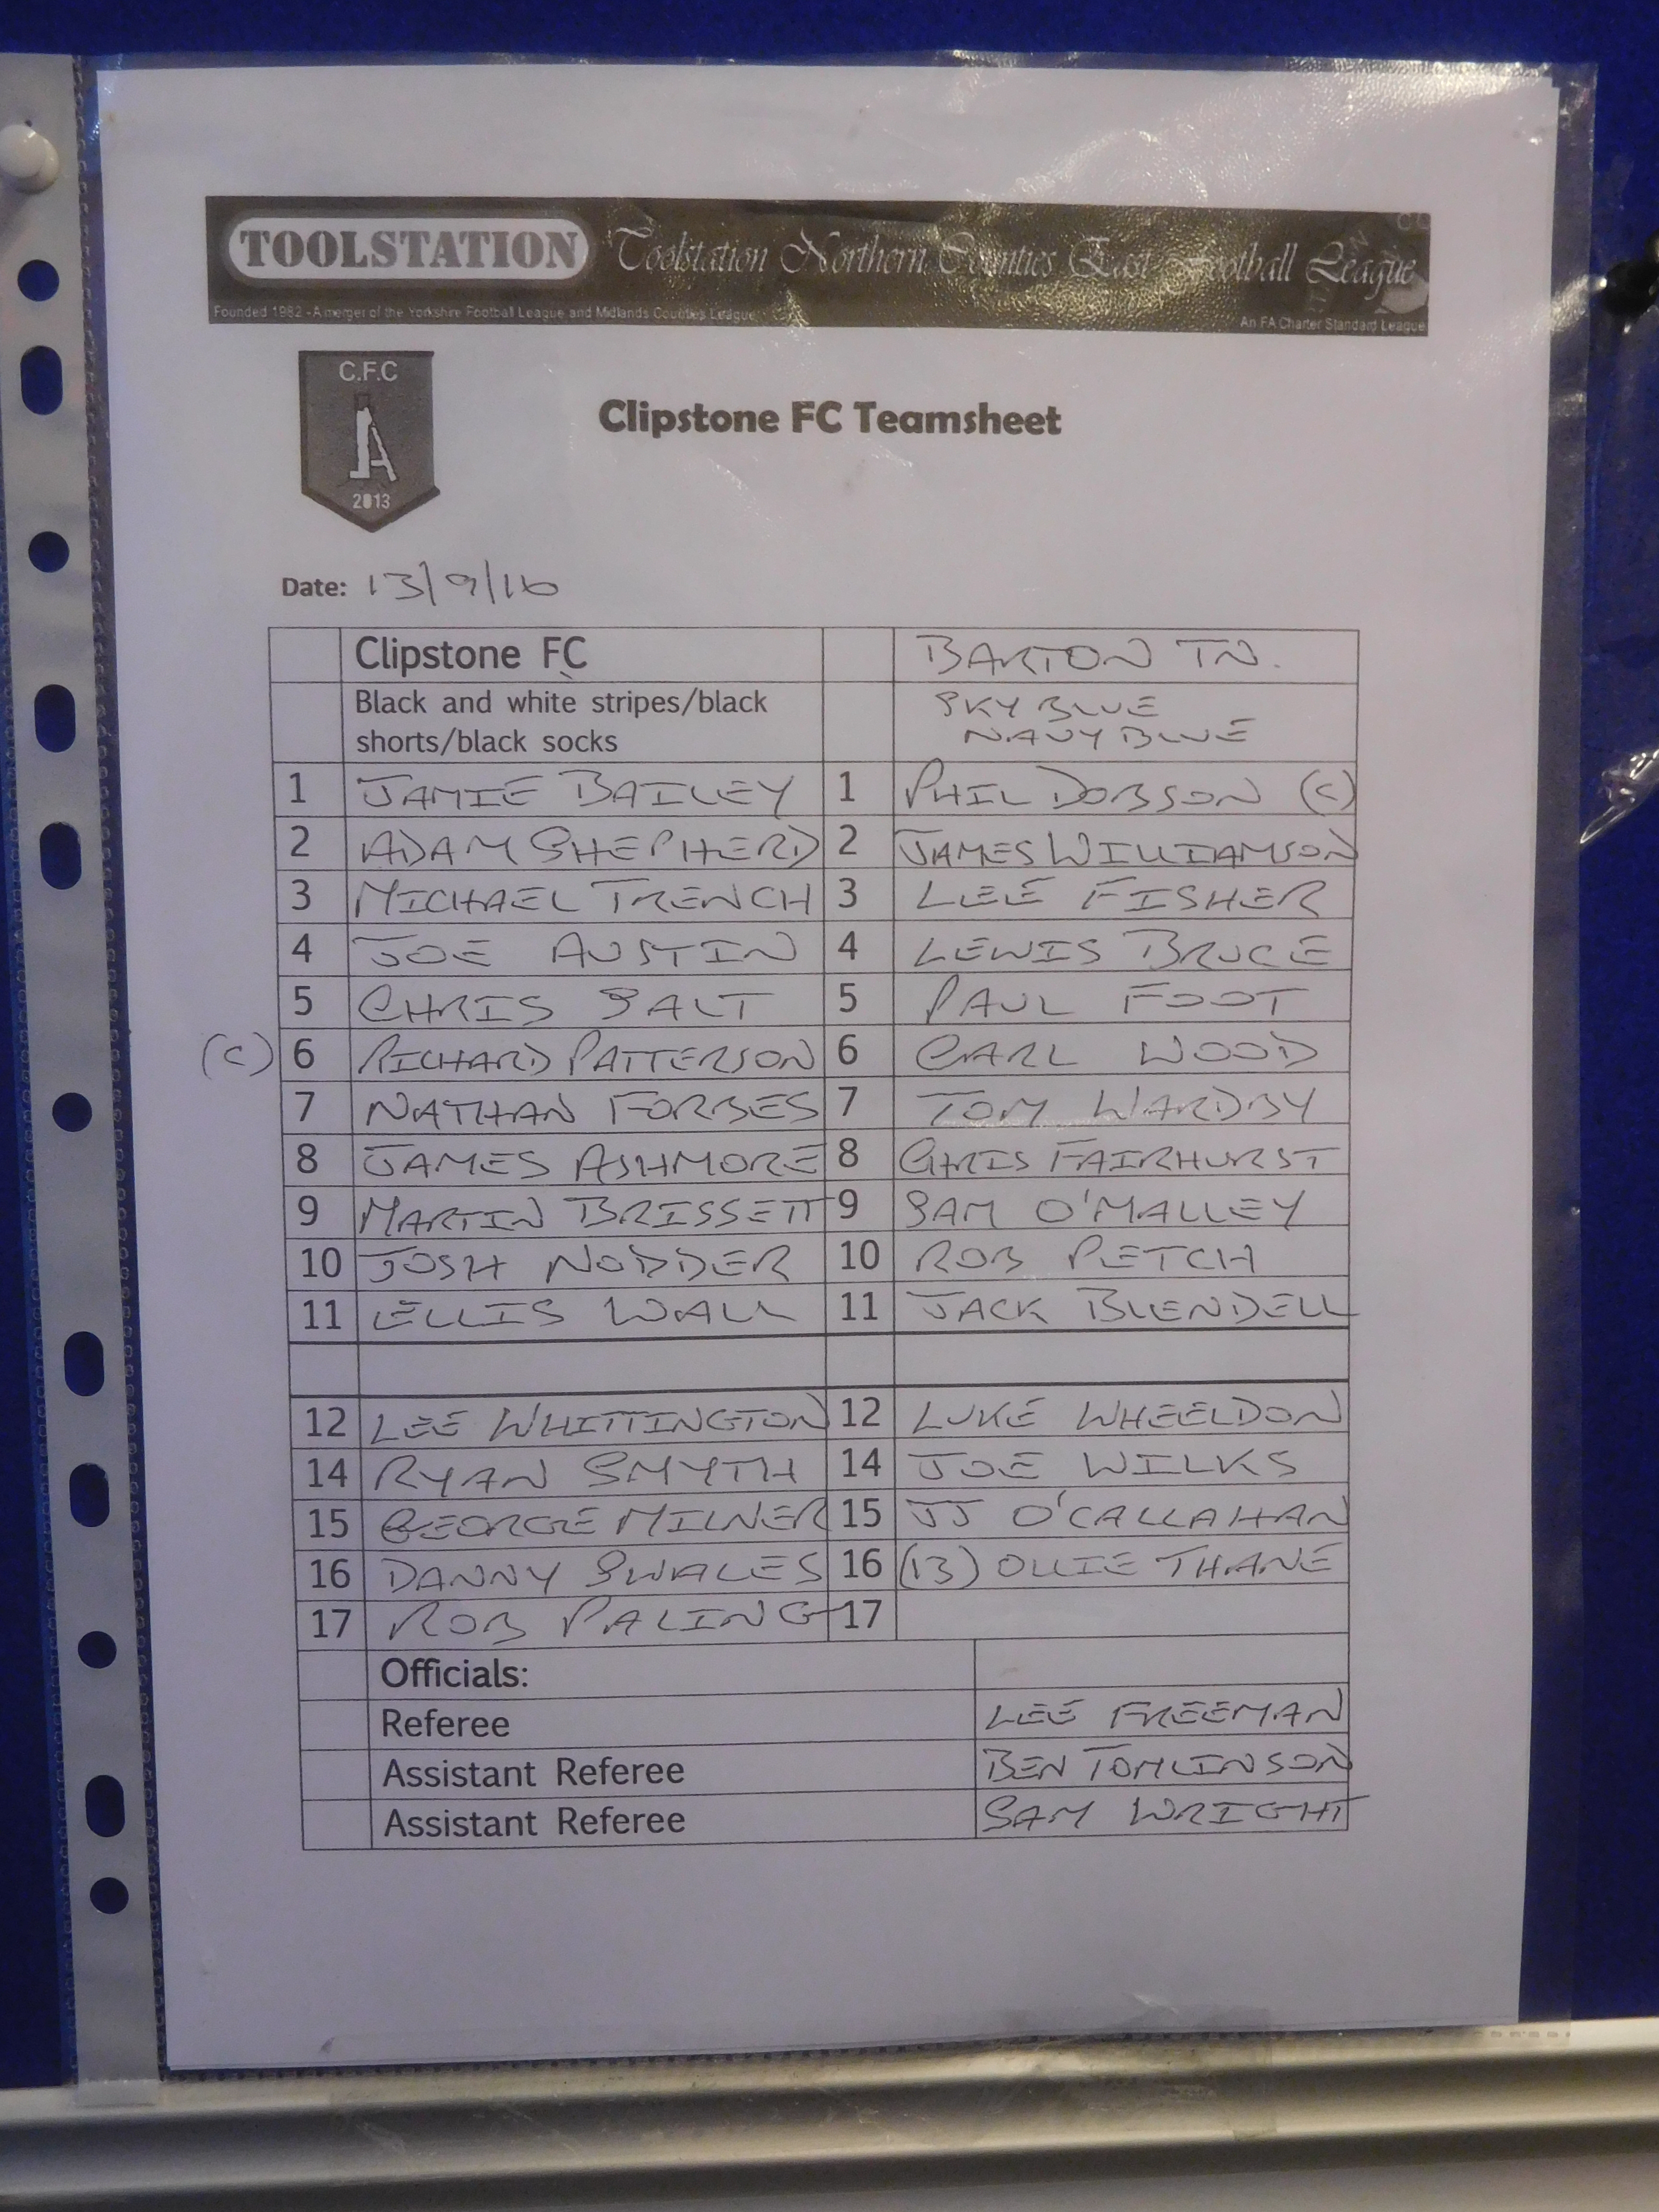 TOOLSTATION Toolstation Northern Counties East Football League
Founded 1982 - A merger of the Yorkshire Football League and Midlands Counties League
An FA Charter Standard League
C.F.C
2013
Clipstone FC Teamsheet
Date: 13/9/16
Clipstone FC BARTON TN.
Black and white stripes/black SKY BLUE
shorts/black socks NAVY BLUE
1 JAMIE BAILEY 1 PHIL DOBSON (C)
2 ADAM SHEPHERD 2 JAMES WILLIAMSON
3 MICHAEL TRENCH 3 LEE FISHER
4 JOE AUSTIN 4 LEWIS BRUCE
5 CHRIS SALT 5 PAUL FOOT
(C) 6 RICHARD PATTERSON 6 CARL WOOD
7 NATHAN FORBES 7 TOM WARDBY
8 JAMES ASHMORE 8 CHRIS FAIRHURST
9 MARTIN BRISSETT 9 SAM O'MALLEY
10 JOSH NODDER 10 ROB PETCH
11 ELLIS WALL 11 JACK BLENDELL
12 LEE WHITTINGTON 12 LUKE WHEELDON
14 RYAN SMYTH 14 JOE WILKS
15 GEORGE MILNER 15 JJ O'CALLAHAN
16 DANNY SWALES 16 (13) OLLIE THANE
17 ROB PALING 17
Officials:
Referee LEE FREEMAN
Assistant Referee BEN TOMLINSON
Assistant Referee SAM WRIGHT